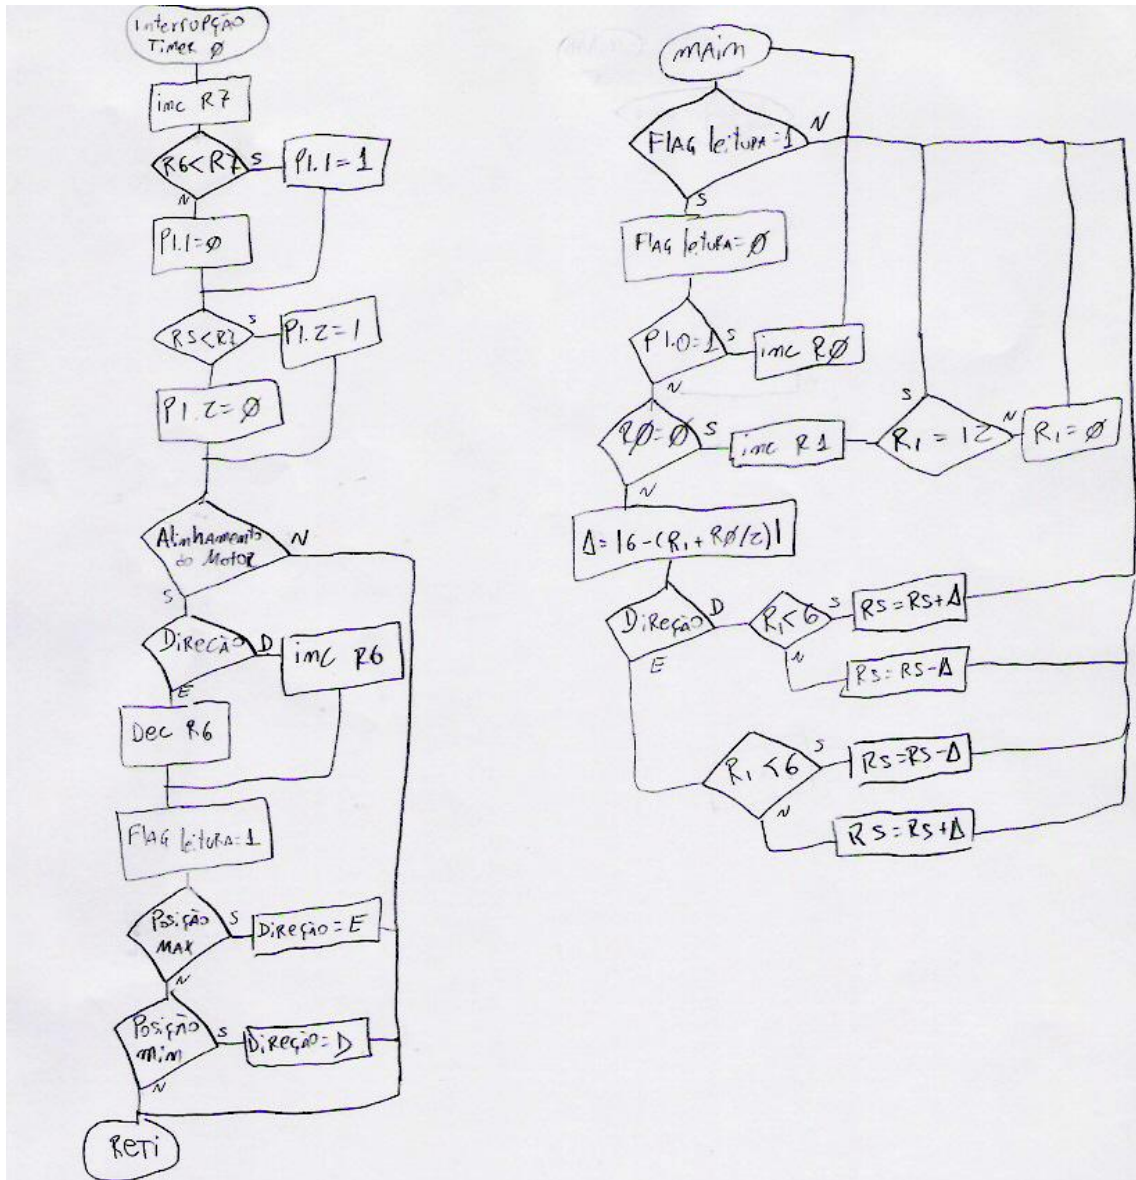 Interrupção
Timer Ø
inc R7
R6<R7
S
P1.1=1
N
P1.1=Ø
R5<R7
S
P1.2=1
P1.2=Ø
Alinhamento
do Motor
N
S
Direção
D
inc R6
E
Dec R6
Flag leitura=1
Posição
MAX
S
Direção=E
N
Posição
min
S
Direção=D
N
Reti
main
Flag leitura=1
N
S
Flag leitura=Ø
P1.0=1
S
inc RØ
N
RØ=Ø
S
inc R1
S
R1=12
N
R1=Ø
N
Δ=|6-(R1+RØ/2)|
Direção
D
R1<6
S
R5=R5+Δ
N
R5=R5-Δ
E
R1<6
S
R5=R5-Δ
N
R5=R5+Δ